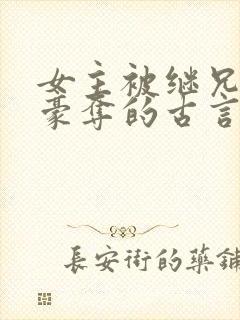 女主被继兄
豪夺的古言
長安街的藥鋪